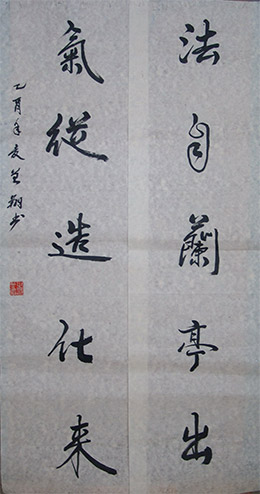 法自蘭亭出
氣從造化来
乙酉年